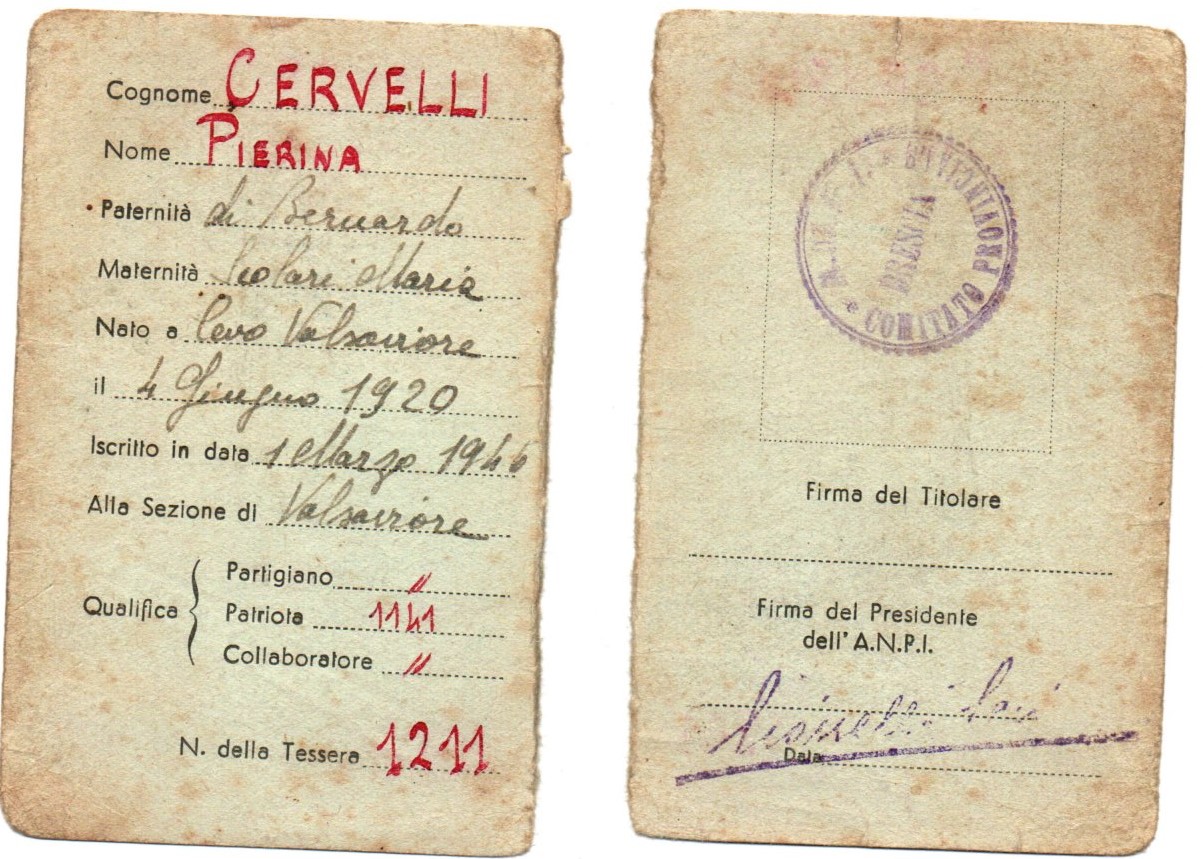 Cognome CERVELLI
Nome PIERINA
Paternità di Bernardo
Maternità Scolari Maria
Nato a Cevo Valsaviore
il 4 Giugno 1920
Iscritto in data 1 Marzo 1946
Alla Sezione di Valsaviore
Qualifica
Partigiano "
Patriota 1141
Collaboratore "
N. della Tessera 1211
A.N.P.I. * COMITATO PROVINCIALE
BRESCIA
Firma del Titolare
Firma del Presidente
dell' A.N.P.I.
Data